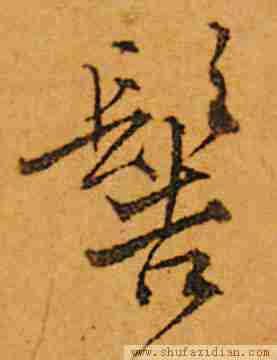 髻
www.shufazidian.com